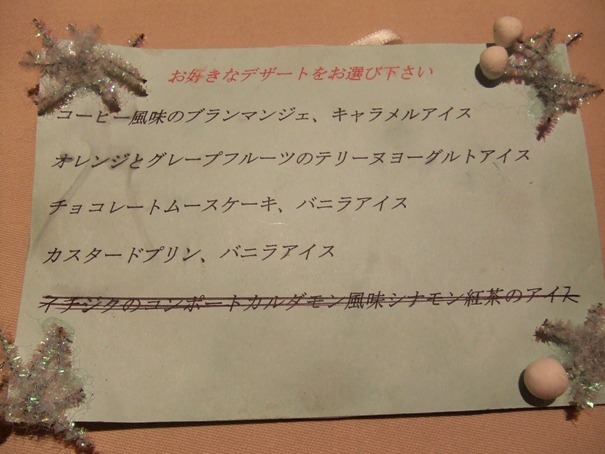 お好きなデザートをお選び下さい
コーヒー風味のブランマンジェ、キャラメルアイス
オレンジとグレープフルーツのテリーヌヨーグルトアイス
チョコレートムースケーキ、バニラアイス
カスタードプリン、バニラアイス
イチジクのコンポートカルダモン風味シナモン紅茶のアイス